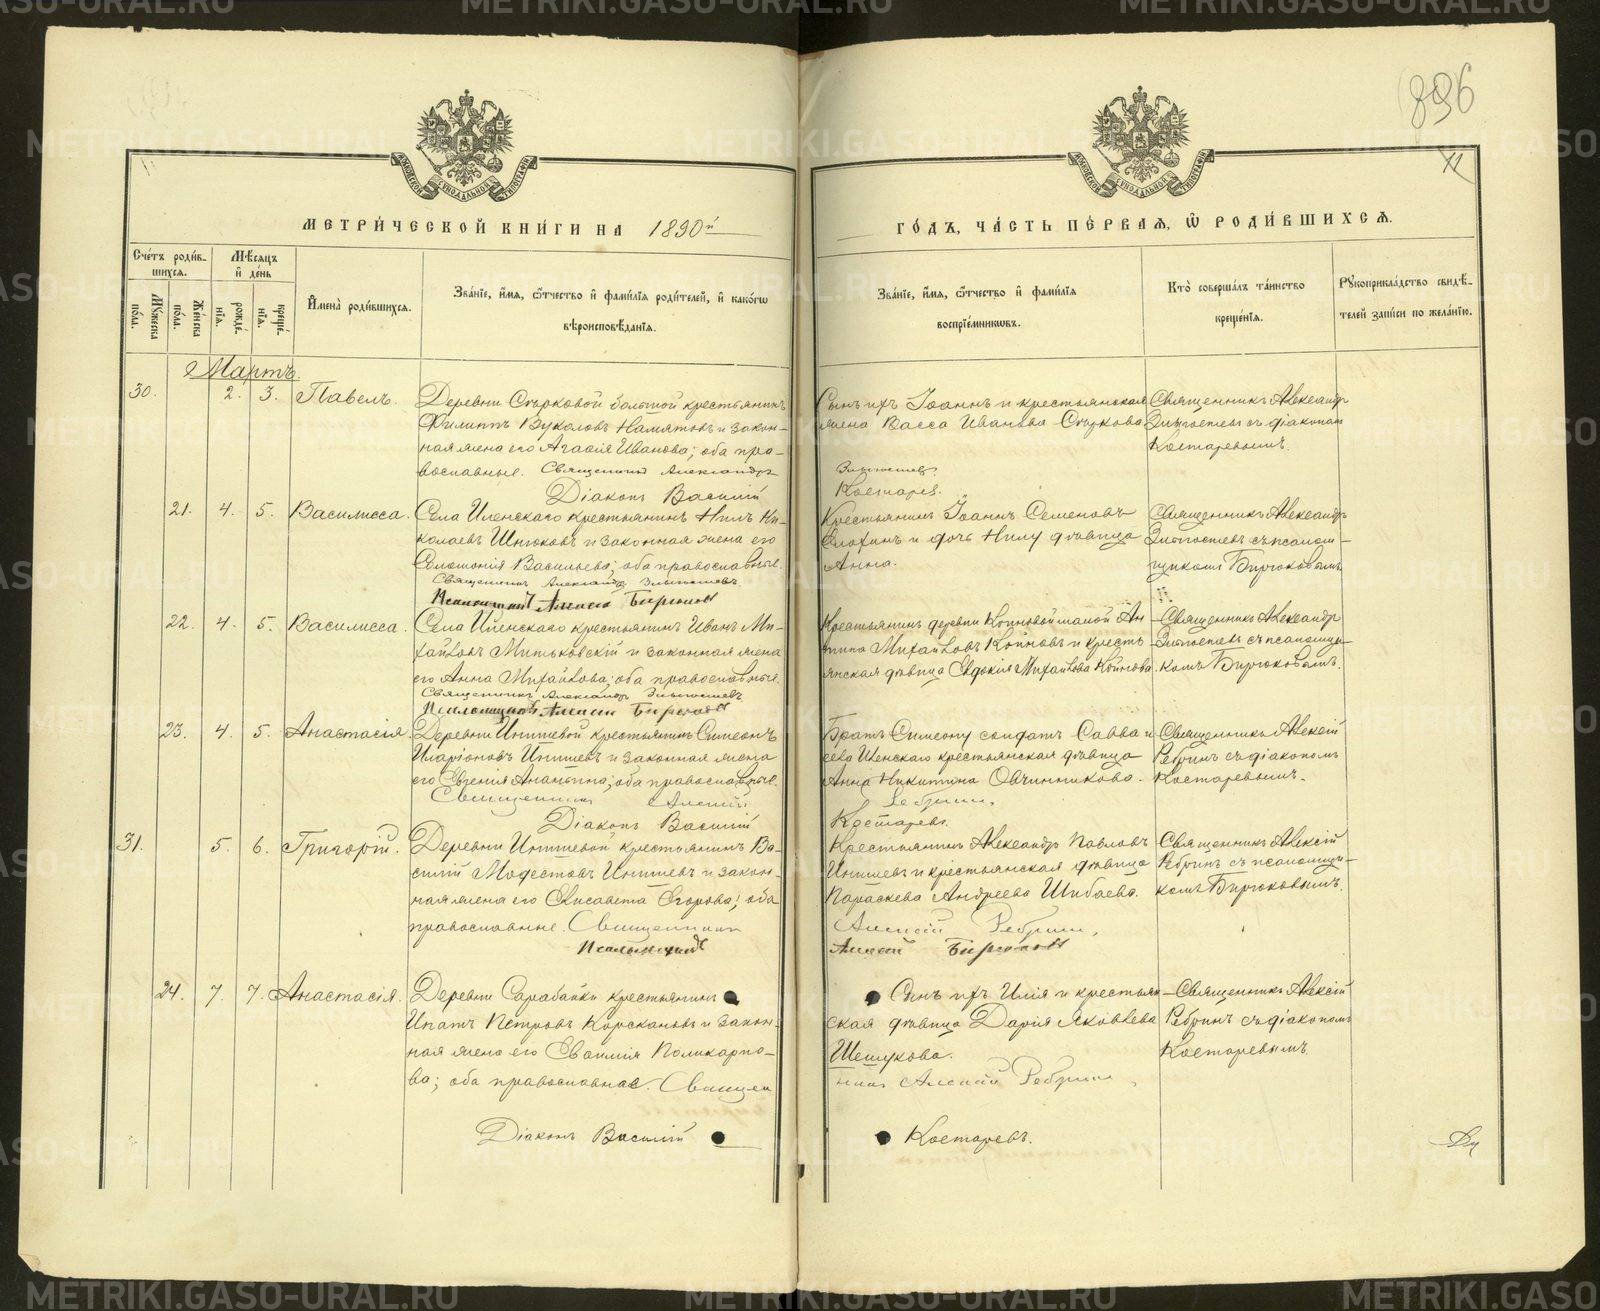 896
11
МЕТРИ́ЧЕСКОЙ КНИ́ГИ НА 1890й
ГО́ДЪ, ЧА́СТЬ ПЕ́РВАЯ, Ѡ РОДИ́ВШИХСЯ.
Сче́тъ роди́в-
шихся.
Мѣсяцъ
и де́нь
Му́жеска
по́ла.
Же́нска
по́ла.
рожде́-
нія.
креще́-
нія.
Имена̀ роди́вшихся.
Зва́ніе, и́мя, ѻ́тчество и фами́лія роди́телей, и како́гѡ
вѣроисповѣ́данія.
Зва́ніе, и́мя, ѻ́тчество и фами́лія
воспріе́мниковъ.
Кто̀ соверша́лъ та́инство
креще́нія.
Рукоприкла́дство свидѣ́-
телей за́писи по жела́нію.
Мартъ.
30. 2. 3. Павелъ.
Деревни Сѣрковой большой крестьянинъ
Филиппъ Вуколовъ Намятовъ и закон-
ная жена его Агафія Иванова; оба пра-
вославные. Священникъ Александръ
Діаконъ Василій
Сынъ ихъ Іоаннъ и крестьянская
жена Васса Иванова Сѣркова
Костаревъ.
Священникъ Александръ
съ діакономъ
Костаревымъ.
21. 4. 5. Василисса.
Села Иленскаго крестьянинъ Нилъ Ни-
колаевъ Шнюковъ и законная жена его
Соломонія Васильева; оба православные.
Священникъ Александръ
Псаломщикъ Алексій Бирюковъ
Крестьянинъ Іоаннъ Семеновъ
и дочь Нилу дѣвица
Анна.
Священникъ Александръ
съ псалом-
щикомъ Бирюковымъ
22. 4. 5. Василисса.
Села Иленскаго крестьянинъ Иванъ Ми-
хайловъ Митьковскій и законная жена
его Анна Михайлова; оба православные.
Священникъ Александръ
Псаломщикъ Алексій Бирюковъ
Крестьянинъ деревни Коиновой малой Ан
типа Михайловъ Коиновъ и кресть
янская дѣвица Евдокія Михайлова Коинова.
Священникъ Александръ
съ псаломщи-
комъ Бирюковымъ.
23. 4. 5. Анастасія.
Деревни Итишевой крестьянинъ Симеонъ
Иларіоновъ Итишевъ и законная жена
его Евгенія Ананьина; оба православные.
Священникъ Алексій
Діаконъ Василій
Братъ Симеону солдатъ Савва и
села Иленскаго крестьянская дѣвица
Анна Никитина Овчинникова.
Ребринъ.
Костаревъ.
Священникъ Алексій
Ребринъ съ діакономъ
Костаревымъ.
31. 5. 6. Григорій.
Деревни Итишевой крестьянинъ Ва-
силій Модестовъ Итишевъ и закон-
ная жена его Елисавета Егорова; оба
православные. Священникъ
Псаломщикъ
Крестьянинъ Александръ Павловъ
Итишевъ и крестьянская дѣвица
Параскева Андреева Шибаева.
Алексій Ребринъ.
Алексій Бирюковъ
Священникъ Алексій
Ребринъ съ псаломщи-
комъ Бирюковымъ.
24. 7. 7. Анастасія.
Деревни Сарабайки крестьянинъ
Ипатъ Петровъ Корскановъ и закон-
ная жена его Евѳимія Поликарпо-
ва; оба православная. Священ
Діаконъ Василій
Сынъ ихъ Илія и крестьян
ская дѣвица Дарія Яковлева
Шешукова.
никъ Алексій Ребринъ,
Костаревъ.
Священникъ Алексій
Ребринъ съ діакономъ
Костаревымъ.
METRIKI.GASO-URAL.RU